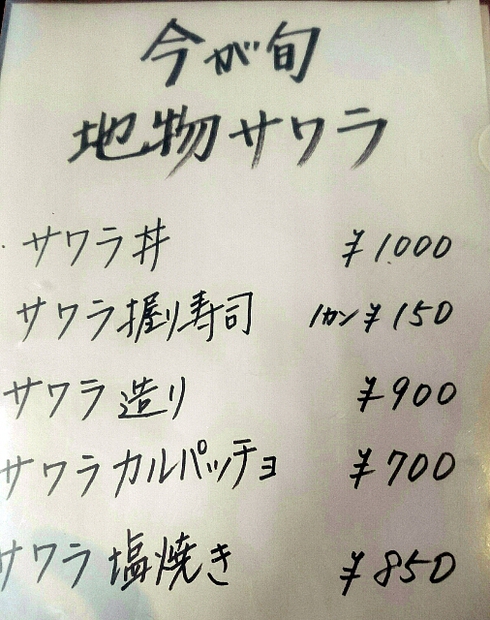 今が旬
地物サワラ
サワラ丼 ¥1.000
サワラ握り寿司 1カン ¥150
サワラ造り ¥900
サワラカルパッチョ ¥700
サワラ塩焼き ¥850